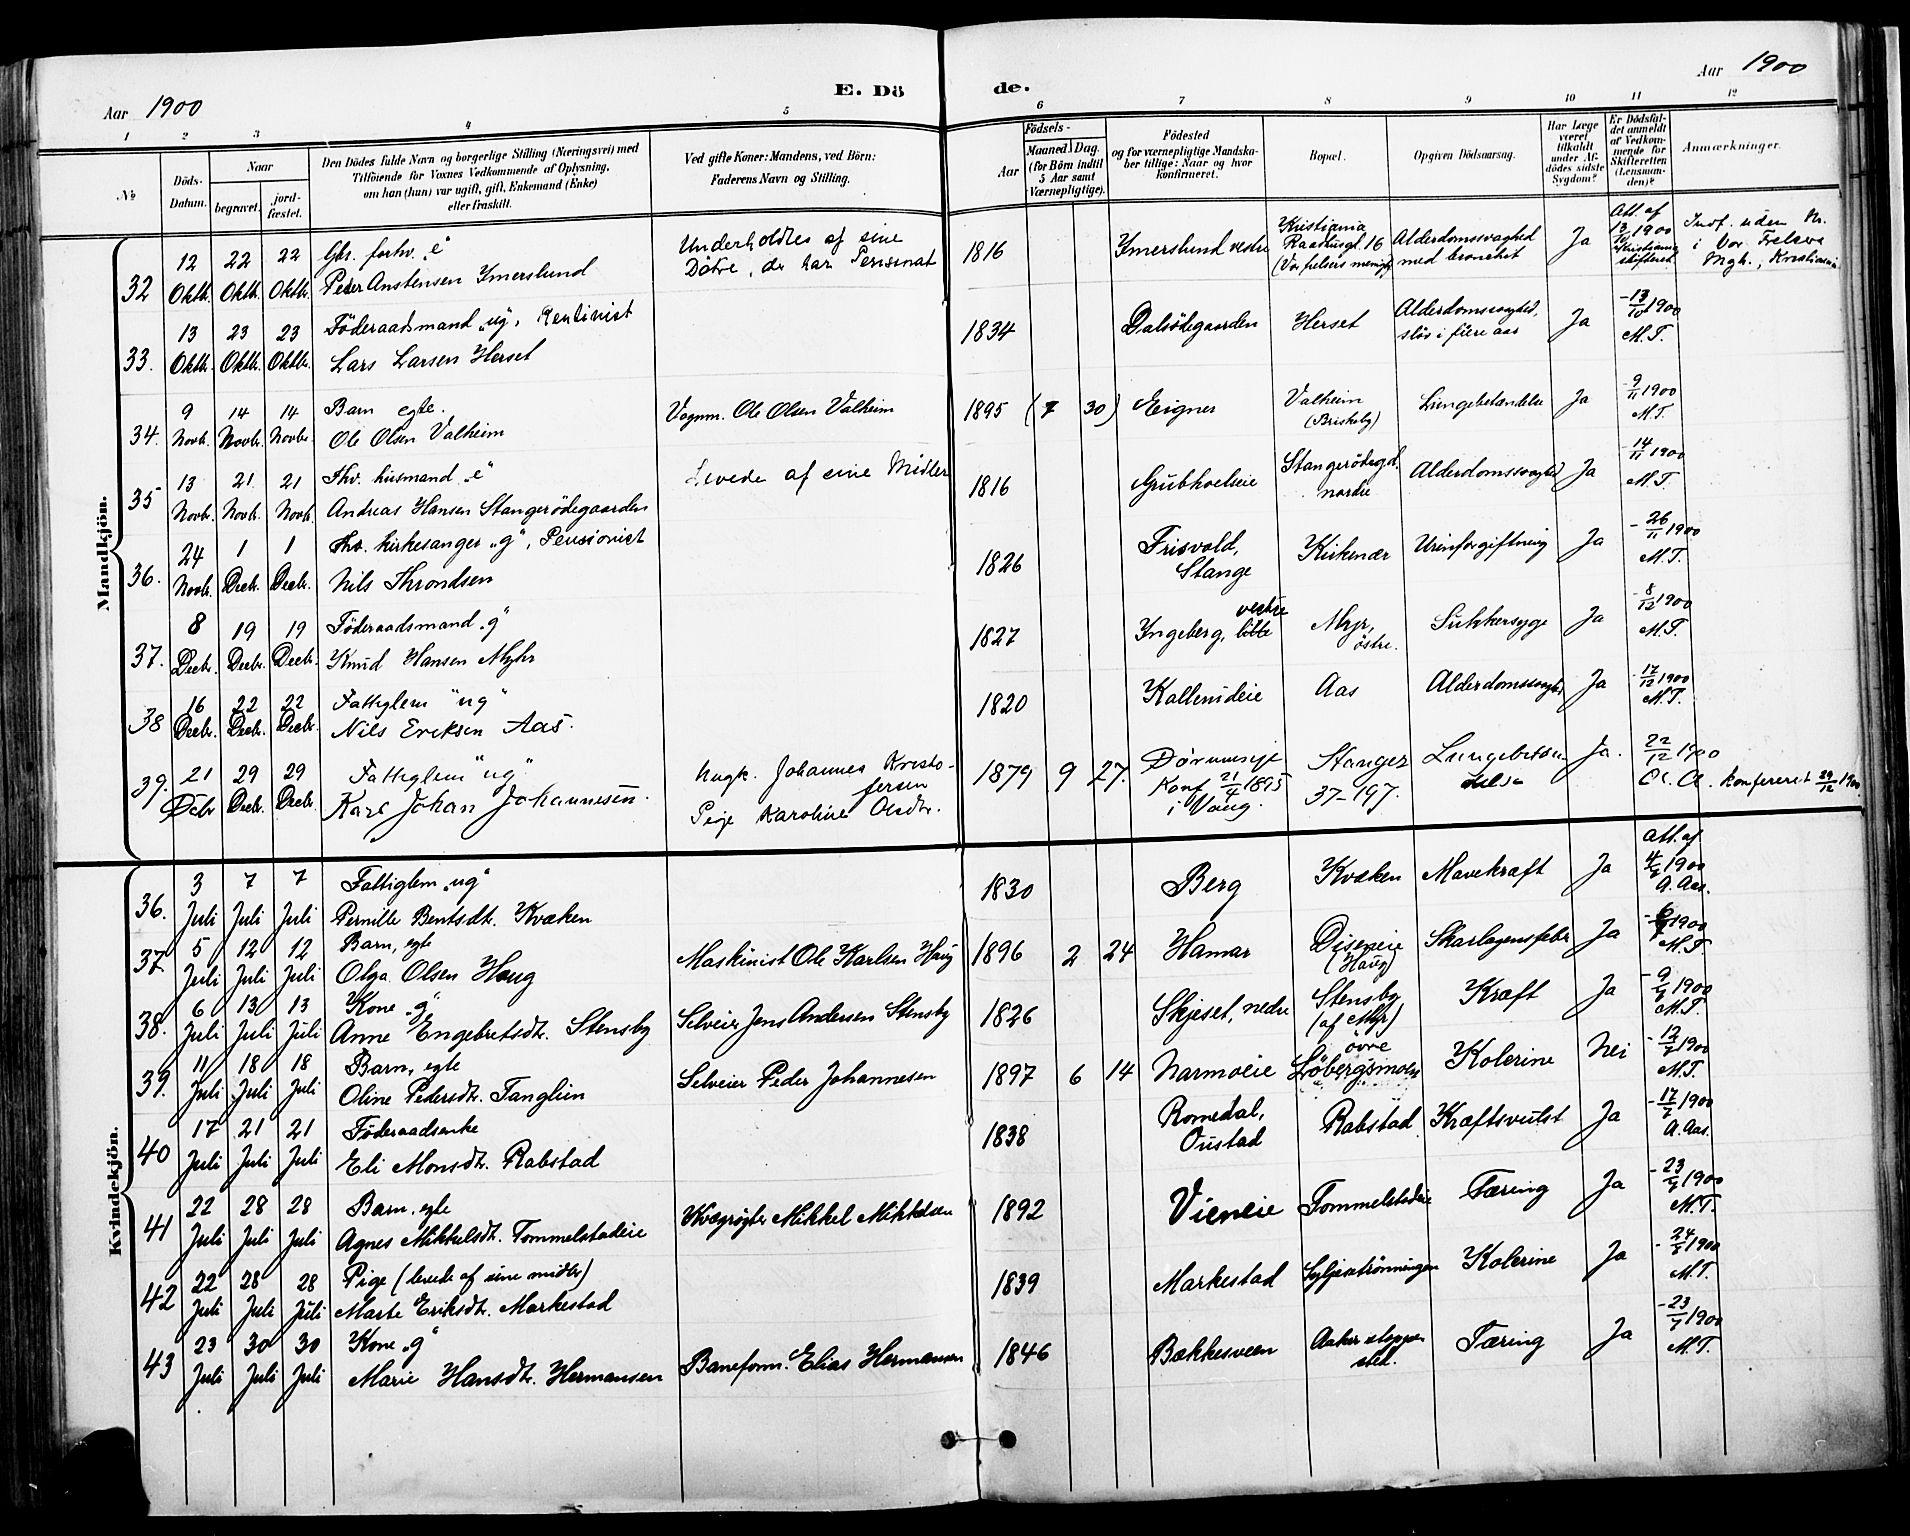 Aar 1900
E. Dö
de.
Aar 1900
1 2 3 4 5 6 7 8 9 10 11 12
No
Döds-
Datum.
Naar
begravet.
jord-
fæstet.
Den Dödes fulde Navn og borgerlige Stilling (Næringsvei) med
Tilföiende for Voxnes Vedkommende af Oplysning,
om han (hun) var ugift, gift, Enkemand (Enke)
eller fraskilt.
Ved gifte Koner: Mandens, ved Börn:
Faderens Navn og Stilling.
Födsels-
Aar
Maaned. Dag.
(for Börn indtil
5 Aar samt
Værnepligtige).
Födested
og for værnepligtige Mandska-
ber tillige: Naar og hvor
konfirmeret.
Bopæl.
Opgiven Dödsaarsag.
Har Læge
været
tilkaldt
under Af-
dödes sidste
Sygdom?
Er Dödsfal-
det anmeldt
af Vedkom-
mende for
Skifteretten
(Lensman-
den)?
Anmærkninger.
Mandkjön.
32 12 Oktb. 22 Oktb. 22 Oktb. Gbr. forhv. "e"
Peder Anstensen Ymerslund
Underholdtes af sine
Døtre, der har Pensionat
1816 Ymerslund vestre
Kristiania
Raadhusgd. 16
(Vor frelsers menigh.)
Alderdomssvaghed
med bronchit
Ja
Att. af
13/10 1900
Kristiania
skifteret
Indf. uden Nr.
i Vor Frelsers
Mgh., Kristiania.
33. 13 Oktb. 23 Oktb. 23 Oktbr. Föderaadsmand "ug", Rentenist
Lars Larsen Herset
1834 Dalsödegaarden Herset
Alderdomssvaghed,
slös i flere aar
Ja
-13/10 1900
M.T.
34. 9 Novb. 14 Novb. 14 Novbr. Barn egte.
Ole Olsen Valheim
Vognm. Ole Olsen Valheim
1895 (7 30) Eigner
Valheim
(Briskeby)
Lungebetændelse Ja
-9/11 1900
M.T.
35 13 Novb. 21 Novb. 21 Novb. Fhv. husmand "e"
Andreas Hansen Stangerödegaarden
Levede af sine Midler
1816 Grubholseie
Stangerödegd.
nordre
Alderdomssvaghed Ja
-14/11 1900
M.T.
36. 24 Novb. 1 Decb. 1 Decb. Fhv. kirkesanger "g", Pensionist
Nils Throndsen
1826 Frisvold,
Stange
Kirkenær Urinforgiftning Ja
-26/11 1900
M.T.
37. 8 Decbr. 19 Decbr. 19 Decb. Föderaadsmand "g"
Knud Hansen Myhr
1827 Ingeberg, vestre lille
Myr,
östre.
Sukkersyge Ja
-8/12 1900
M.T.
38 16 Decbr. 22 Decb. 22 Decb. Fattiglem "ug"
Nils Eriksen Aas.
1820 Kallerudeie Aas Alderdomssvaghed Ja
-17/12 1900
M.T.
39. 21 Decbr 29 Decb. 29 Decb. Fattiglem "ug"
Karl Johan Johannesen.
Ungk. Johannes Kristo-
fersen
Pige Karoline Olsdtr.
1879 9 27.
Konf 21/4 1895
i Vang.
Stanger
37-197.
Lungebetæn
delse
Ja.
22/12 1900
O. A. konfereret 29/12 1900
Kvindekjön.
36. 3 Juli 7 Juli 7 Juli Fattiglem "ug"
Pernille Bentsdtr. Kvæken
1830 Berg Kvæken Mavekræft Ja
Att. af
4/7 1900
A. Aas.
37 5 Juli 12 Juli 12 Juli Barn, egte
Olga Olsen Haug
Maskinist Ole Karlsen Haug
1896 2 24 Hamar
Diseneie
(Haug)
Skarlagensfeber Ja
-6/7 1900
M.T.
38. 6 Juli 13 Juli 13 Juli Kone "g"
Anne Engebretsdtr. Stensby
Selveier Jens Andersen Stensby
1826 Skjeset, nedre
Stensby
(af Myr)
Kræft Ja
-9/7 1900
M.T.
39. 11 Juli 18 Juli 18 Juli Barn, egte
Oline Pedersdtr. Tanglien
Selveier Peder Johannesen
1897 6 14 Narmoeie
övre
Löbergsmoen
Kolerine Nei
-12/7 1900
M.T.
40 17 Juli 21 Juli 21 Juli Föderaadsenke
Eli Monsdtr. Rabstad
1838 Romedal,
Oustad
Rabstad Kræftsvulst Ja
-17/7 1900
A. Aas.
41 22 Juli 28 Juli 28 Juli Barn, egte
Agnes Mikkelsdtr. Tommelstadeie
Kvægrögter Mikkel Mikkelsen
1892 Vieneie Tommelstadeie Tæring Ja
-23/7 1900
M.T.
42 22 Juli 28 Juli 28 Juli Pige (levede af sine midler)
Marte Eriksdtr. Markestad
1839 Markestad Kolerine Ja
-24/7 1900
M.T.
43 23 Juli 30 Juli 30 Juli Kone "g"
Marie Hansdtr. Hermansen
Baneform. Elias Hermansen
1846 Bakkesveen
Aaker stoppe
sted.
Tæring Ja
-23/7 1900
M.T.